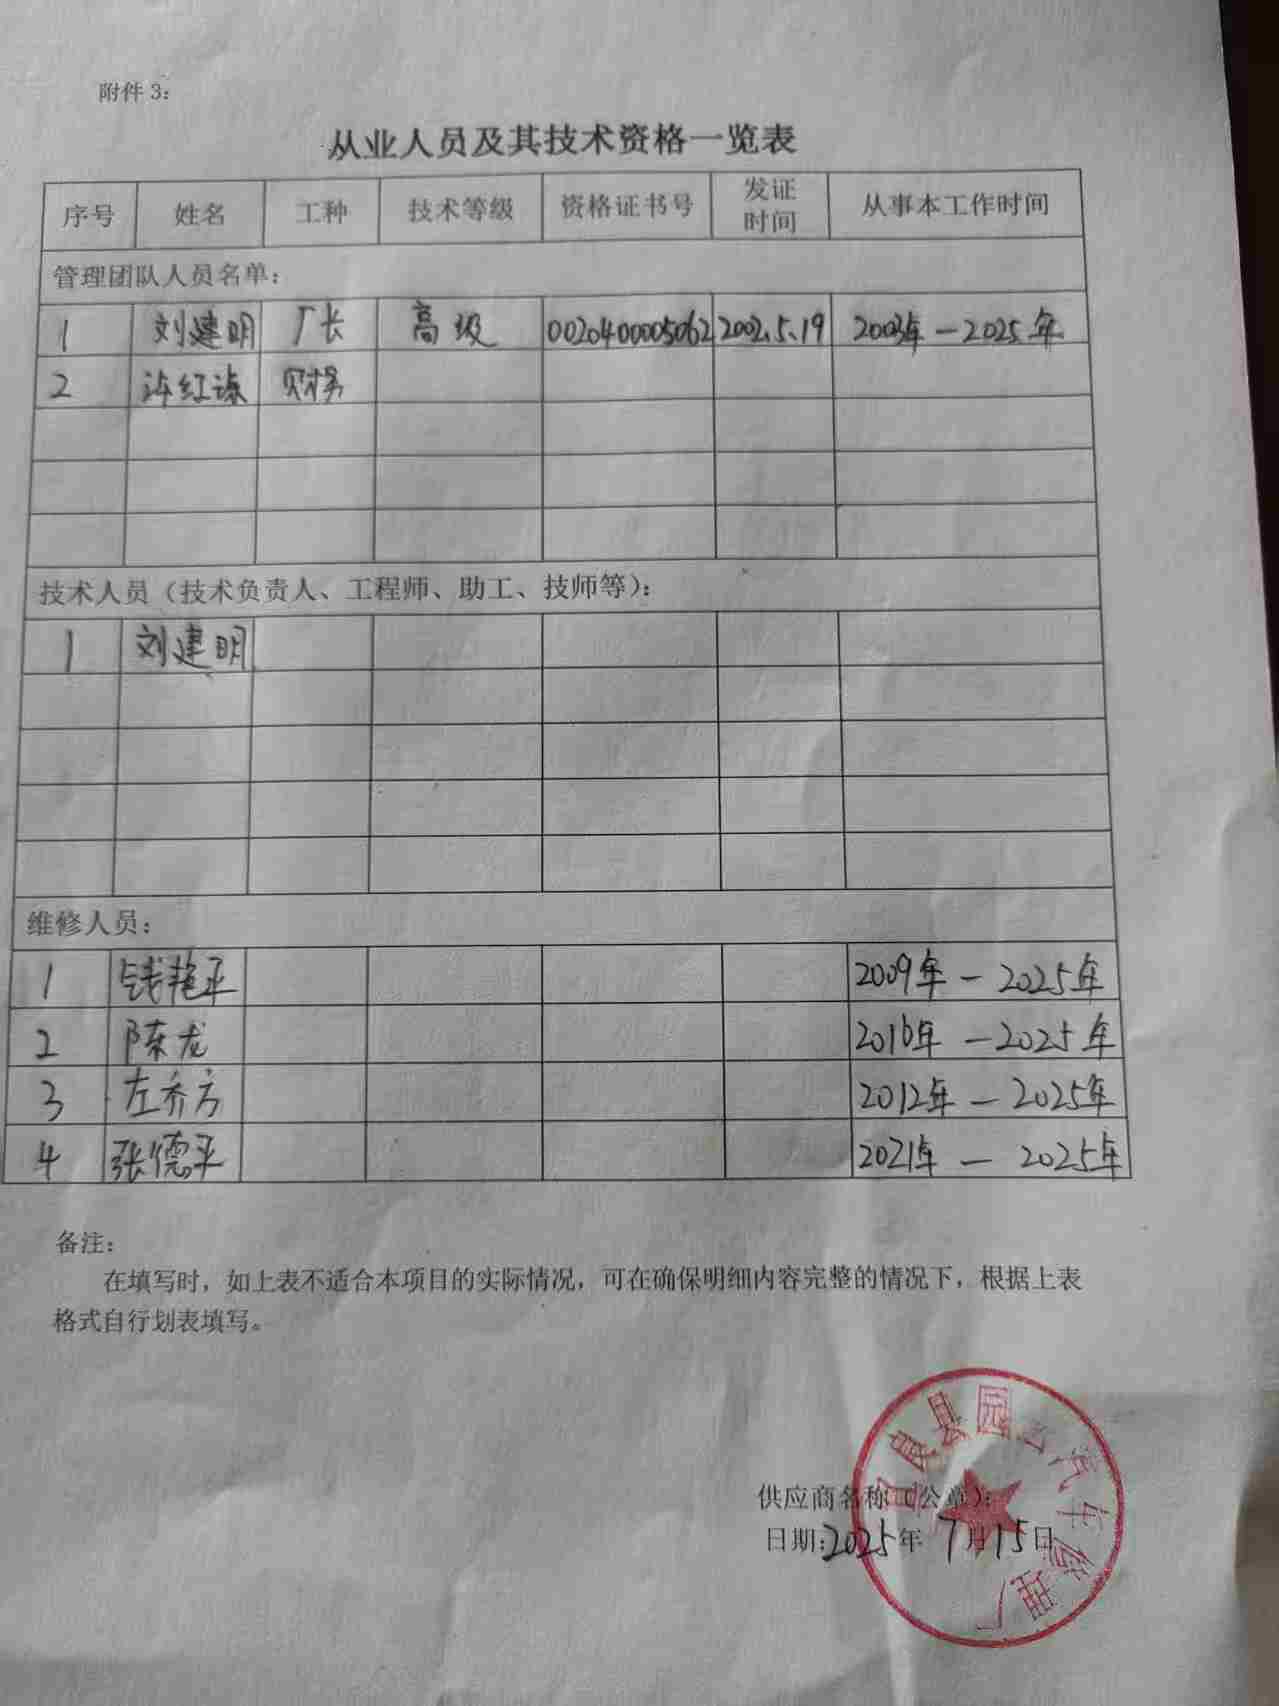 附件 3：
从业人员及其技术资格一览表
序号 姓名 工种 技术等级 资格证书号 发证时间 从事本工作时间
管理团队人员名单：
1 刘建明 厂长 高级 0020400005062 2002.5.19 2003年－2025年
2 红 财务
技术人员（技术负责人、工程师、助工、技师等）：
1 刘建明
维修人员：
1 钱艳平 2009年－2025年
2 陈龙 2016年－2025年
3 左乔方 2012年－2025年
4 张德平 2021年－2025年
备注：
在填写时，如上表不适合本项目的实际情况，可在确保明细内容完整的情况下，根据上表
格式自行划表填写。
县园 汽车修理厂
供应商名称（公章）：
日期：2025年 7月15日